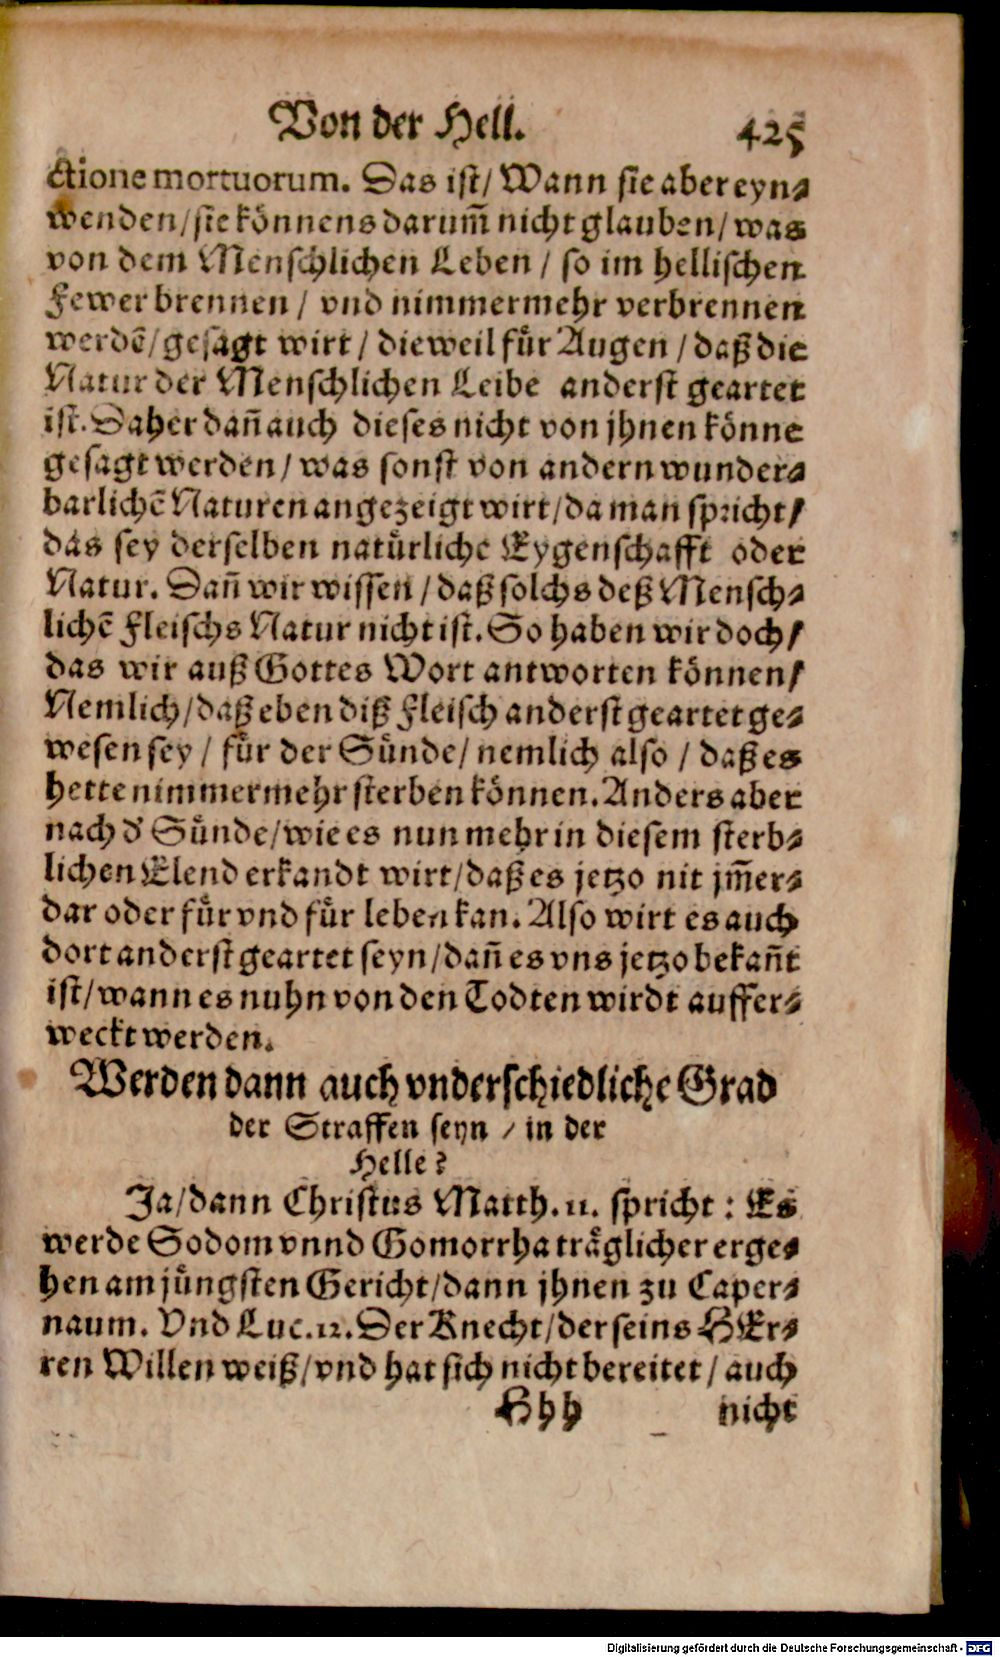 Von der Hell. 425
ctione mortuorum. Das ist/ Wann sie aber eyn⸗
wenden/ sie könnens darum̃ nicht glauben/ was
von dem Menschlichen Leben / so im hellischen
Fewer brennen / vnd nimmermehr verbrennen
werdẽ/ gesagt wirt / dieweil für Augen / daß die
Natur der Menschlichen Leibe anderst geartet
ist. Daher dañ auch dieses nicht von jhnen könne
gesagt werden / was sonst von andern wunder⸗
barlichẽ Naturen angezeigt wirt/ da man spricht/
das sey derselben natürliche Eygenschafft oder
Natur. Dañ wir wissen / daß solchs deß Mensch⸗
lichẽ Fleischs Natur nicht ist. So haben wir doch/
das wir auß Gottes Wort antworten können/
Nemlich/ daß eben diß Fleisch anderst geartet ge⸗
wesen sey / für der Sünde/ nemlich also / daß es
hette nimmermehr sterben können. Anders aber
nach d' Sünde/ wie es nun mehr in diesem sterb⸗
lichen Elend erkandt wirt/ daß es jetzo nit jm̃er⸗
dar oder für vnd für leben kan. Also wirt es auch
dort anderst geartet seyn/ dañ es vns jetzo bekañt
ist/ wann es nuhn von den Todten wirdt auffer⸗
weckt werden.
Werden dann auch vnderschiedliche Grad
der Straffen seyn / in der
Helle?
Ja/ dann Christus Matth. 11. spricht : Es
werde Sodom vnnd Gomorrha träglicher erge⸗
hen am jüngsten Gericht/ dann jhnen zu Caper⸗
naum. Vnd Luc. 12. Der Knecht/ der seins HEr⸗
ren Willen weiß/ vnd hat sich nicht bereitet / auch
Hhh nicht
Digitalisierung gefördert durch die Deutsche Forschungsgemeinschaft - DFG